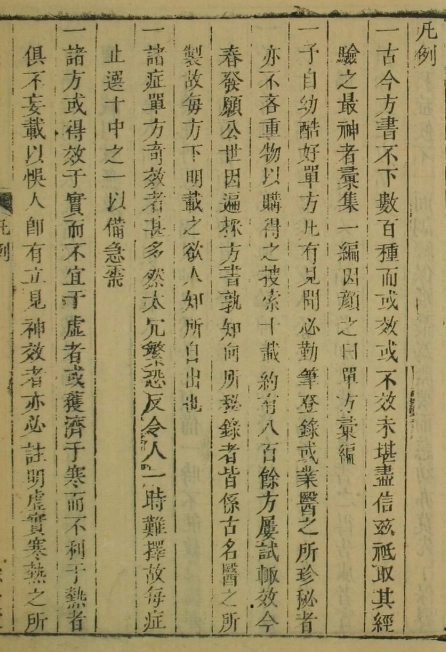 凡例
一古今方書不下數百種而或效或不效未堪盡信玆祗取其經
驗之最神者彙集一編因顏之曰單方彙編
一予自幼酷好單方凡有見聞必勤筆登錄或業醫之所珍秘者
亦不吝重物以購得之搜索十載約有八百餘方屢試輙效今
春發願公世因遍採方書孰知向所秘錄者皆係古名醫之所
製故每方下明載之欲人知所自出也
一諸症單方奇效者甚多然太冗繁恐反令人一時難擇故每症
止選十中之一以備急需
一諸方或得效于實而不宜于虛者或獲濟于寒而不利于熱者
俱不妄載以悞人即有立見神效者亦必註明虛實寒熱之所
凡例